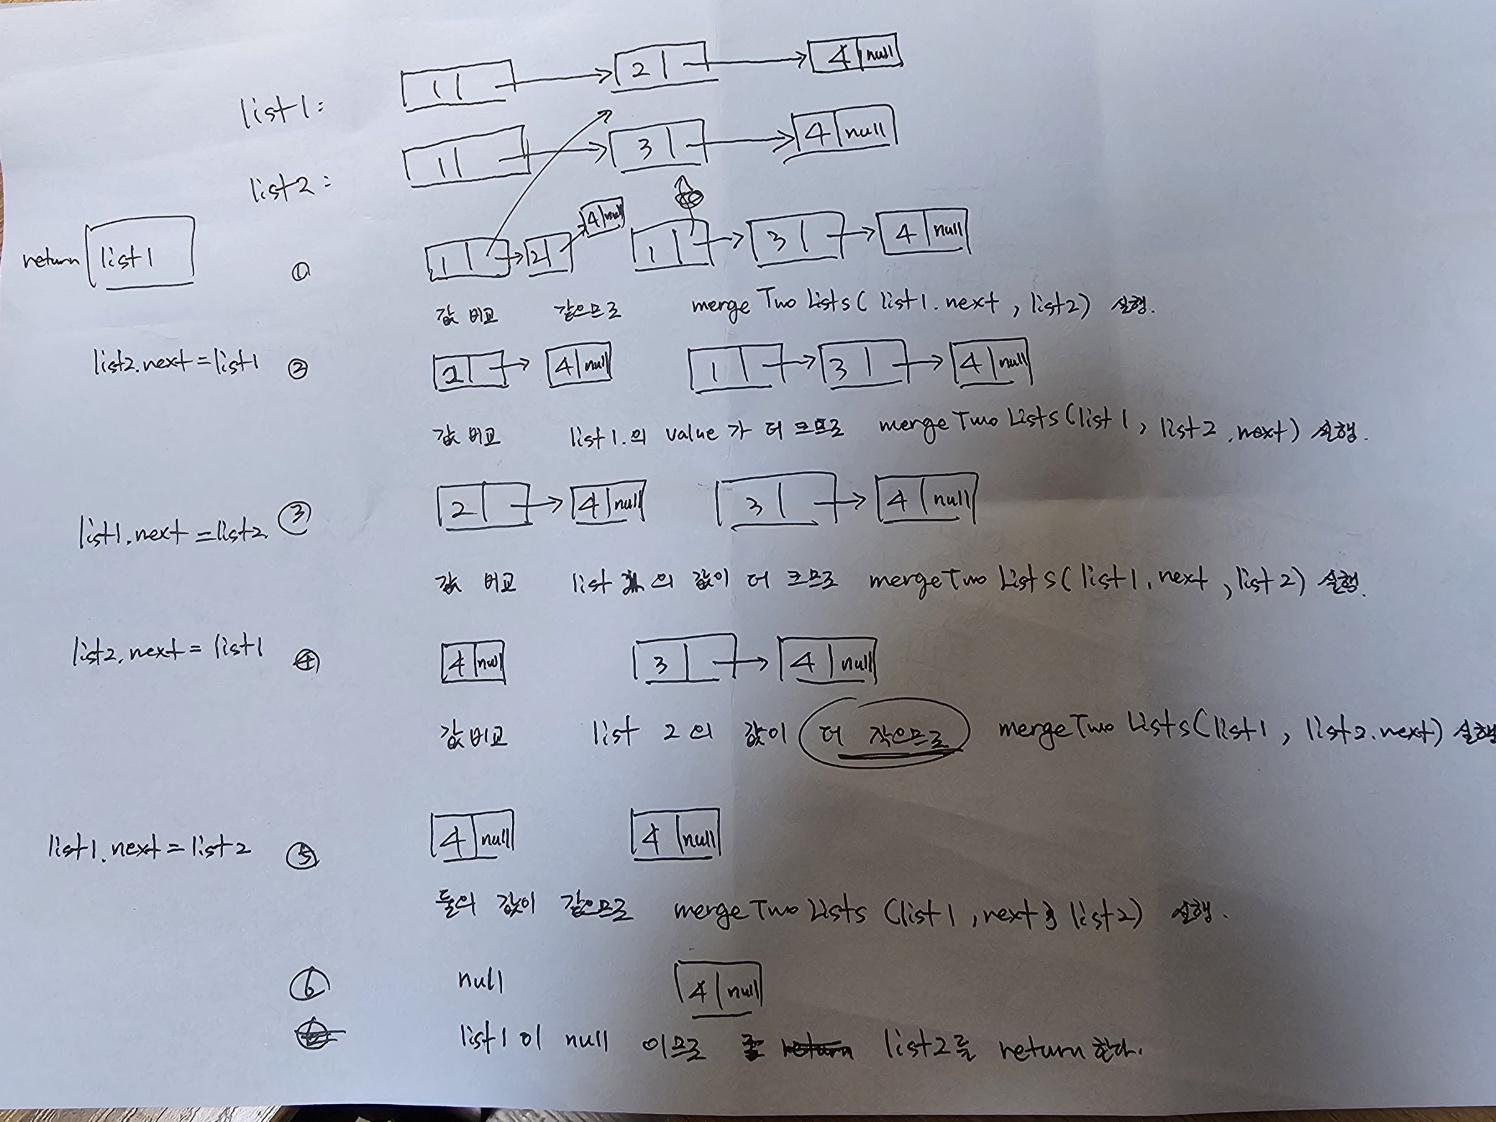 list1: 1 2 4 null
list2: 1 3 4 null
return list1 ① 1 2 4 null 1 3 4 null
값 비교 같으므로 mergeTwoLists( list1.next , list2) 실행.
list2.next = list1 ② 2 4 null 1 3 4 null
값 비교 list1.의 value가 더 크므로 mergeTwoLists(list1, list2.next) 실행.
list1.next = list2 ③ 2 4 null 3 4 null
값 비교 list 의 값이 더 크므로 mergeTwoLists( list1.next , list2) 실행.
list2.next = list1 ④ 4 null 3 4 null
값비교 list 2의 값이 더 작으므로 mergeTwoLists(list1, list2.next) 실행
list1.next = list2 ⑤ 4 null 4 null
둘의 값이 같으므로 mergeTwoLists (list1,next, list2) 실행.
⑥ null 4 null
list1이 null 이므로 return list2를 return한다.